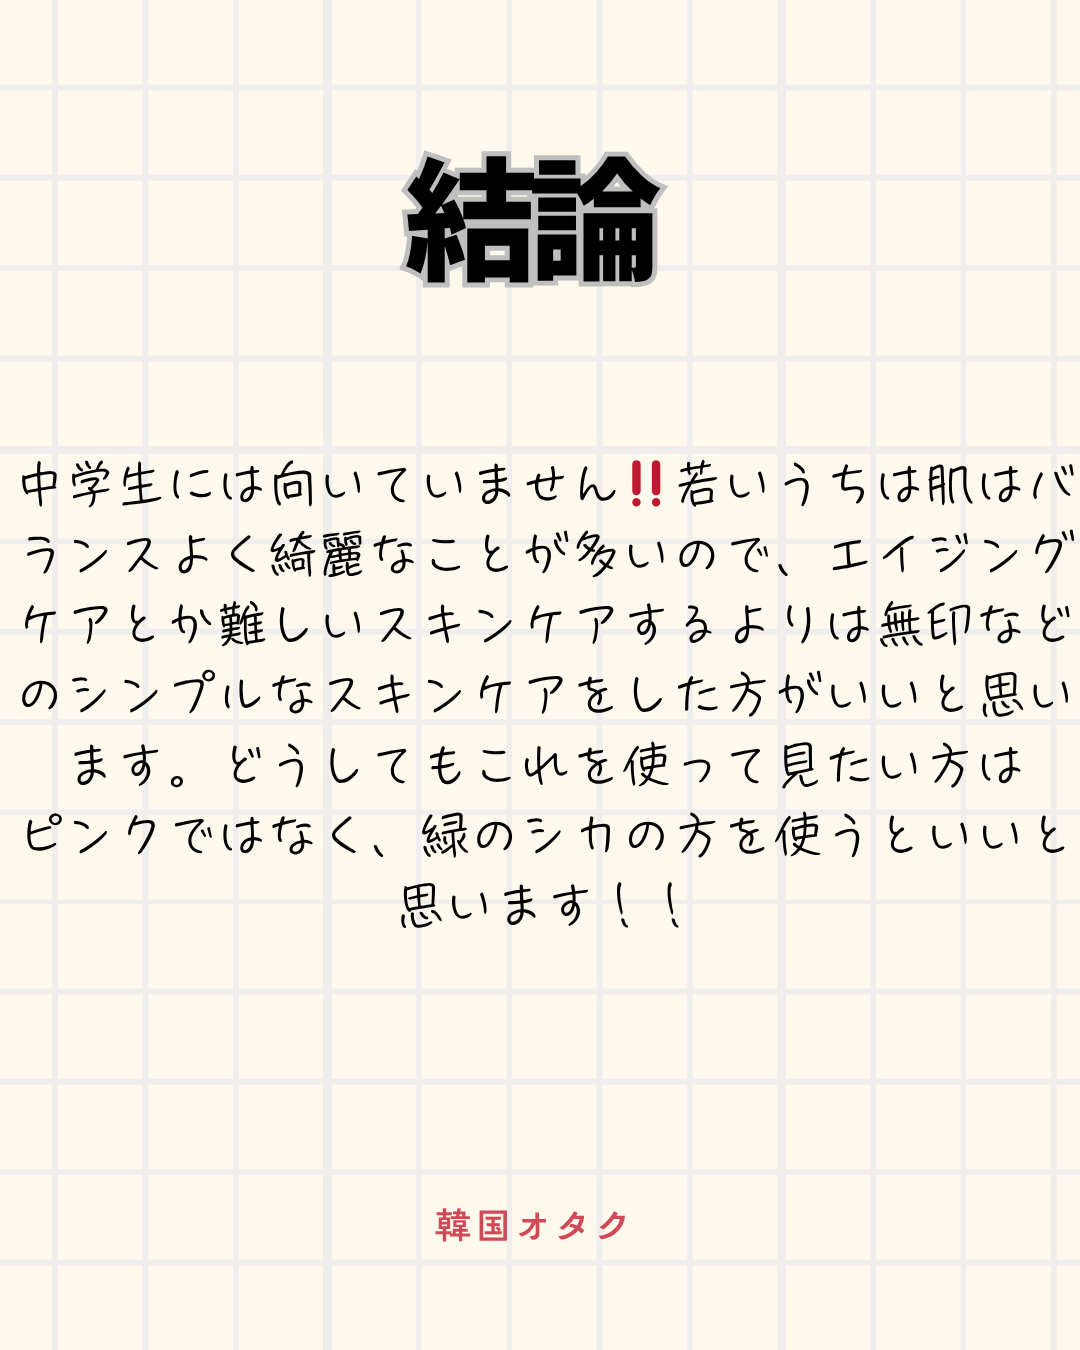 結論
中学生には向いていません‼️若いうちは肌はバ
ランスよく綺麗なことが多いので、エイジング
ケアとか難しいスキンケアするよりは無印など
のシンプルなスキンケアをした方がいいと思い
ます。どうしてもこれを使って見たい方は
ピンクではなく、緑のシカの方を使うといいと
思います！！
韓国オタク